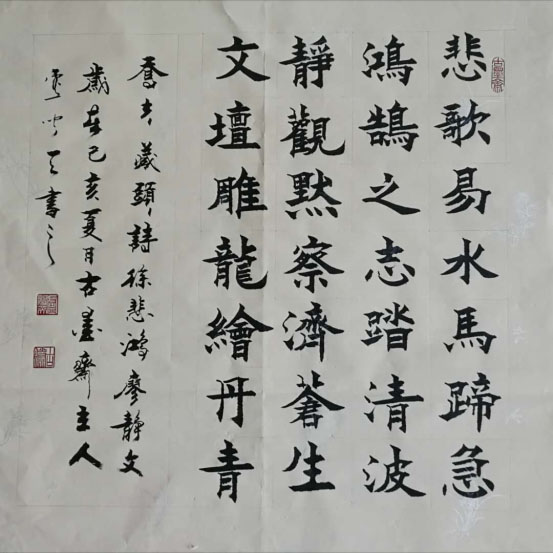 悲歌易水馬蹄急
鴻鵠之志踏清波
靜觀默察濟蒼生
文壇雕龍繪丹青
喬大藏頭詩徐悲鴻廖靜文
歲在己亥夏日古墨齋主人
書之